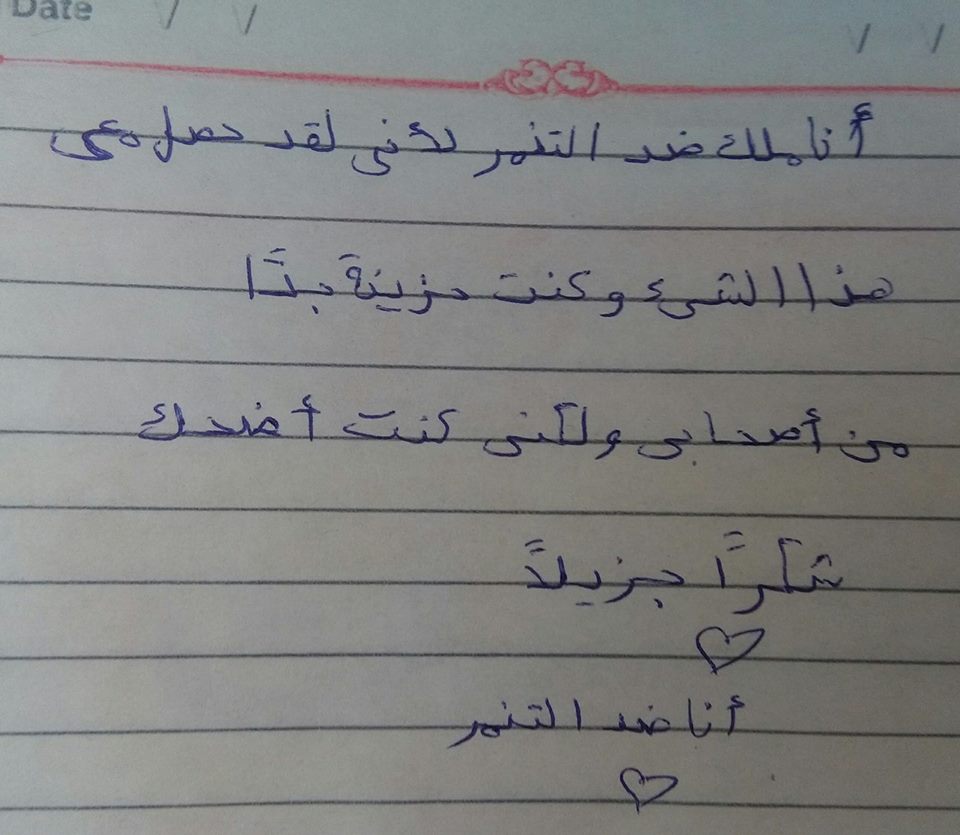 Date / / / /
أنا ملك ضد التنمر لأني لقد حصل معي
هذا الشئ وكنت حزينة جدًا
من أصحابي ولكني كنت أضحك
شكرًا جزيلاً
أنا ضد التنمر